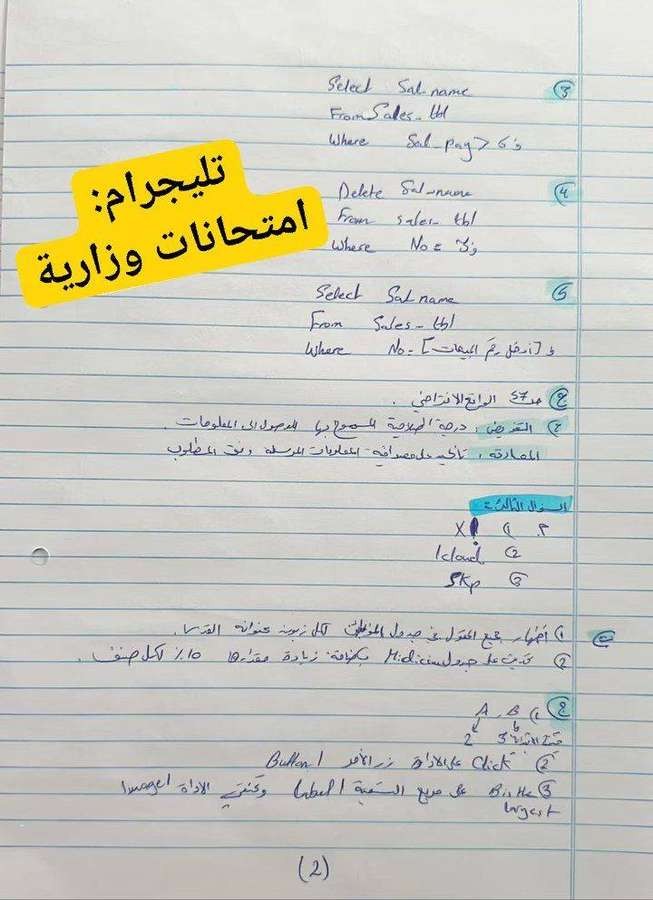 تليجرام:
امتحانات وزارية
③ Select Sal-name
From Sales-tbl
Where Sal-pag > 65
④ Delete Sal-name
From sales-tbl
Where No =
⑤ Select Sal-name
From Sales-tbl
Where No = [أدخل رقم المبيعات]
ج) ص 57 الواقع الافتراضي.
ج) التفويض: درجة الصلاحية المسموح بها للوصول إلى المعلومات.
المصادقة: تأكيد على مصداقية المعلومات المرسلة وفق المطلوب
السؤال الثالث:
م. 1) X
2) Icloud
3) SKP
1) أظهار جميع الحقول في جدول لكل زبون عنوانه القدس.
2) على جدول Midicin زيادة مقدارها 10% لكل صنف.
ج) 1) A, B
2 3
2) Click على الأداة زر الأمر Button1
3) B is the largest على مربع التسمية label1 وتختفي الأداة Image1
(2)